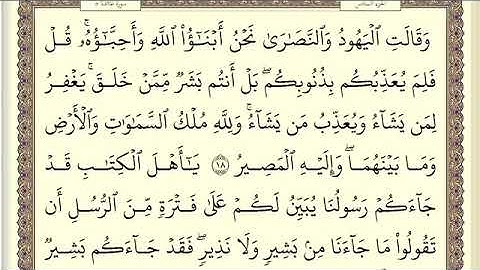 الجزء السادس سورة المائدة ٥
وَقَالَتِ ٱلْيَهُودُ وَٱلنَّصَٰرَىٰ نَحْنُ أَبْنَٰٓؤُا۟ ٱللَّهِ وَأَحِبَّٰٓؤُهُۥ ۚ قُلْ
فَلِمَ يُعَذِّبُكُم بِذُنُوبِكُم ۖ بَلْ أَنتُم بَشَرٌ مِّمَّنْ خَلَقَ ۚ يَغْفِرُ
لِمَن يَشَآءُ وَيُعَذِّبُ مَن يَشَآءُ ۚ وَلِلَّهِ مُلْكُ ٱلسَّمَٰوَٰتِ وَٱلْأَرْضِ
وَمَا بَيْنَهُمَا ۖ وَإِلَيْهِ ٱلْمَصِيرُ ١٨ يَٰٓأَهْلَ ٱلْكِتَٰبِ قَدْ
جَآءَكُمْ رَسُولُنَا يُبَيِّنُ لَكُمْ عَلَىٰ فَتْرَةٍ مِّنَ ٱلرُّسُلِ أَن
تَقُولُوا۟ مَا جَآءَنَا مِنۢ بَشِيرٍ وَلَا نَذِيرٍ ۖ فَقَدْ جَآءَكُم بَشِيرٌ